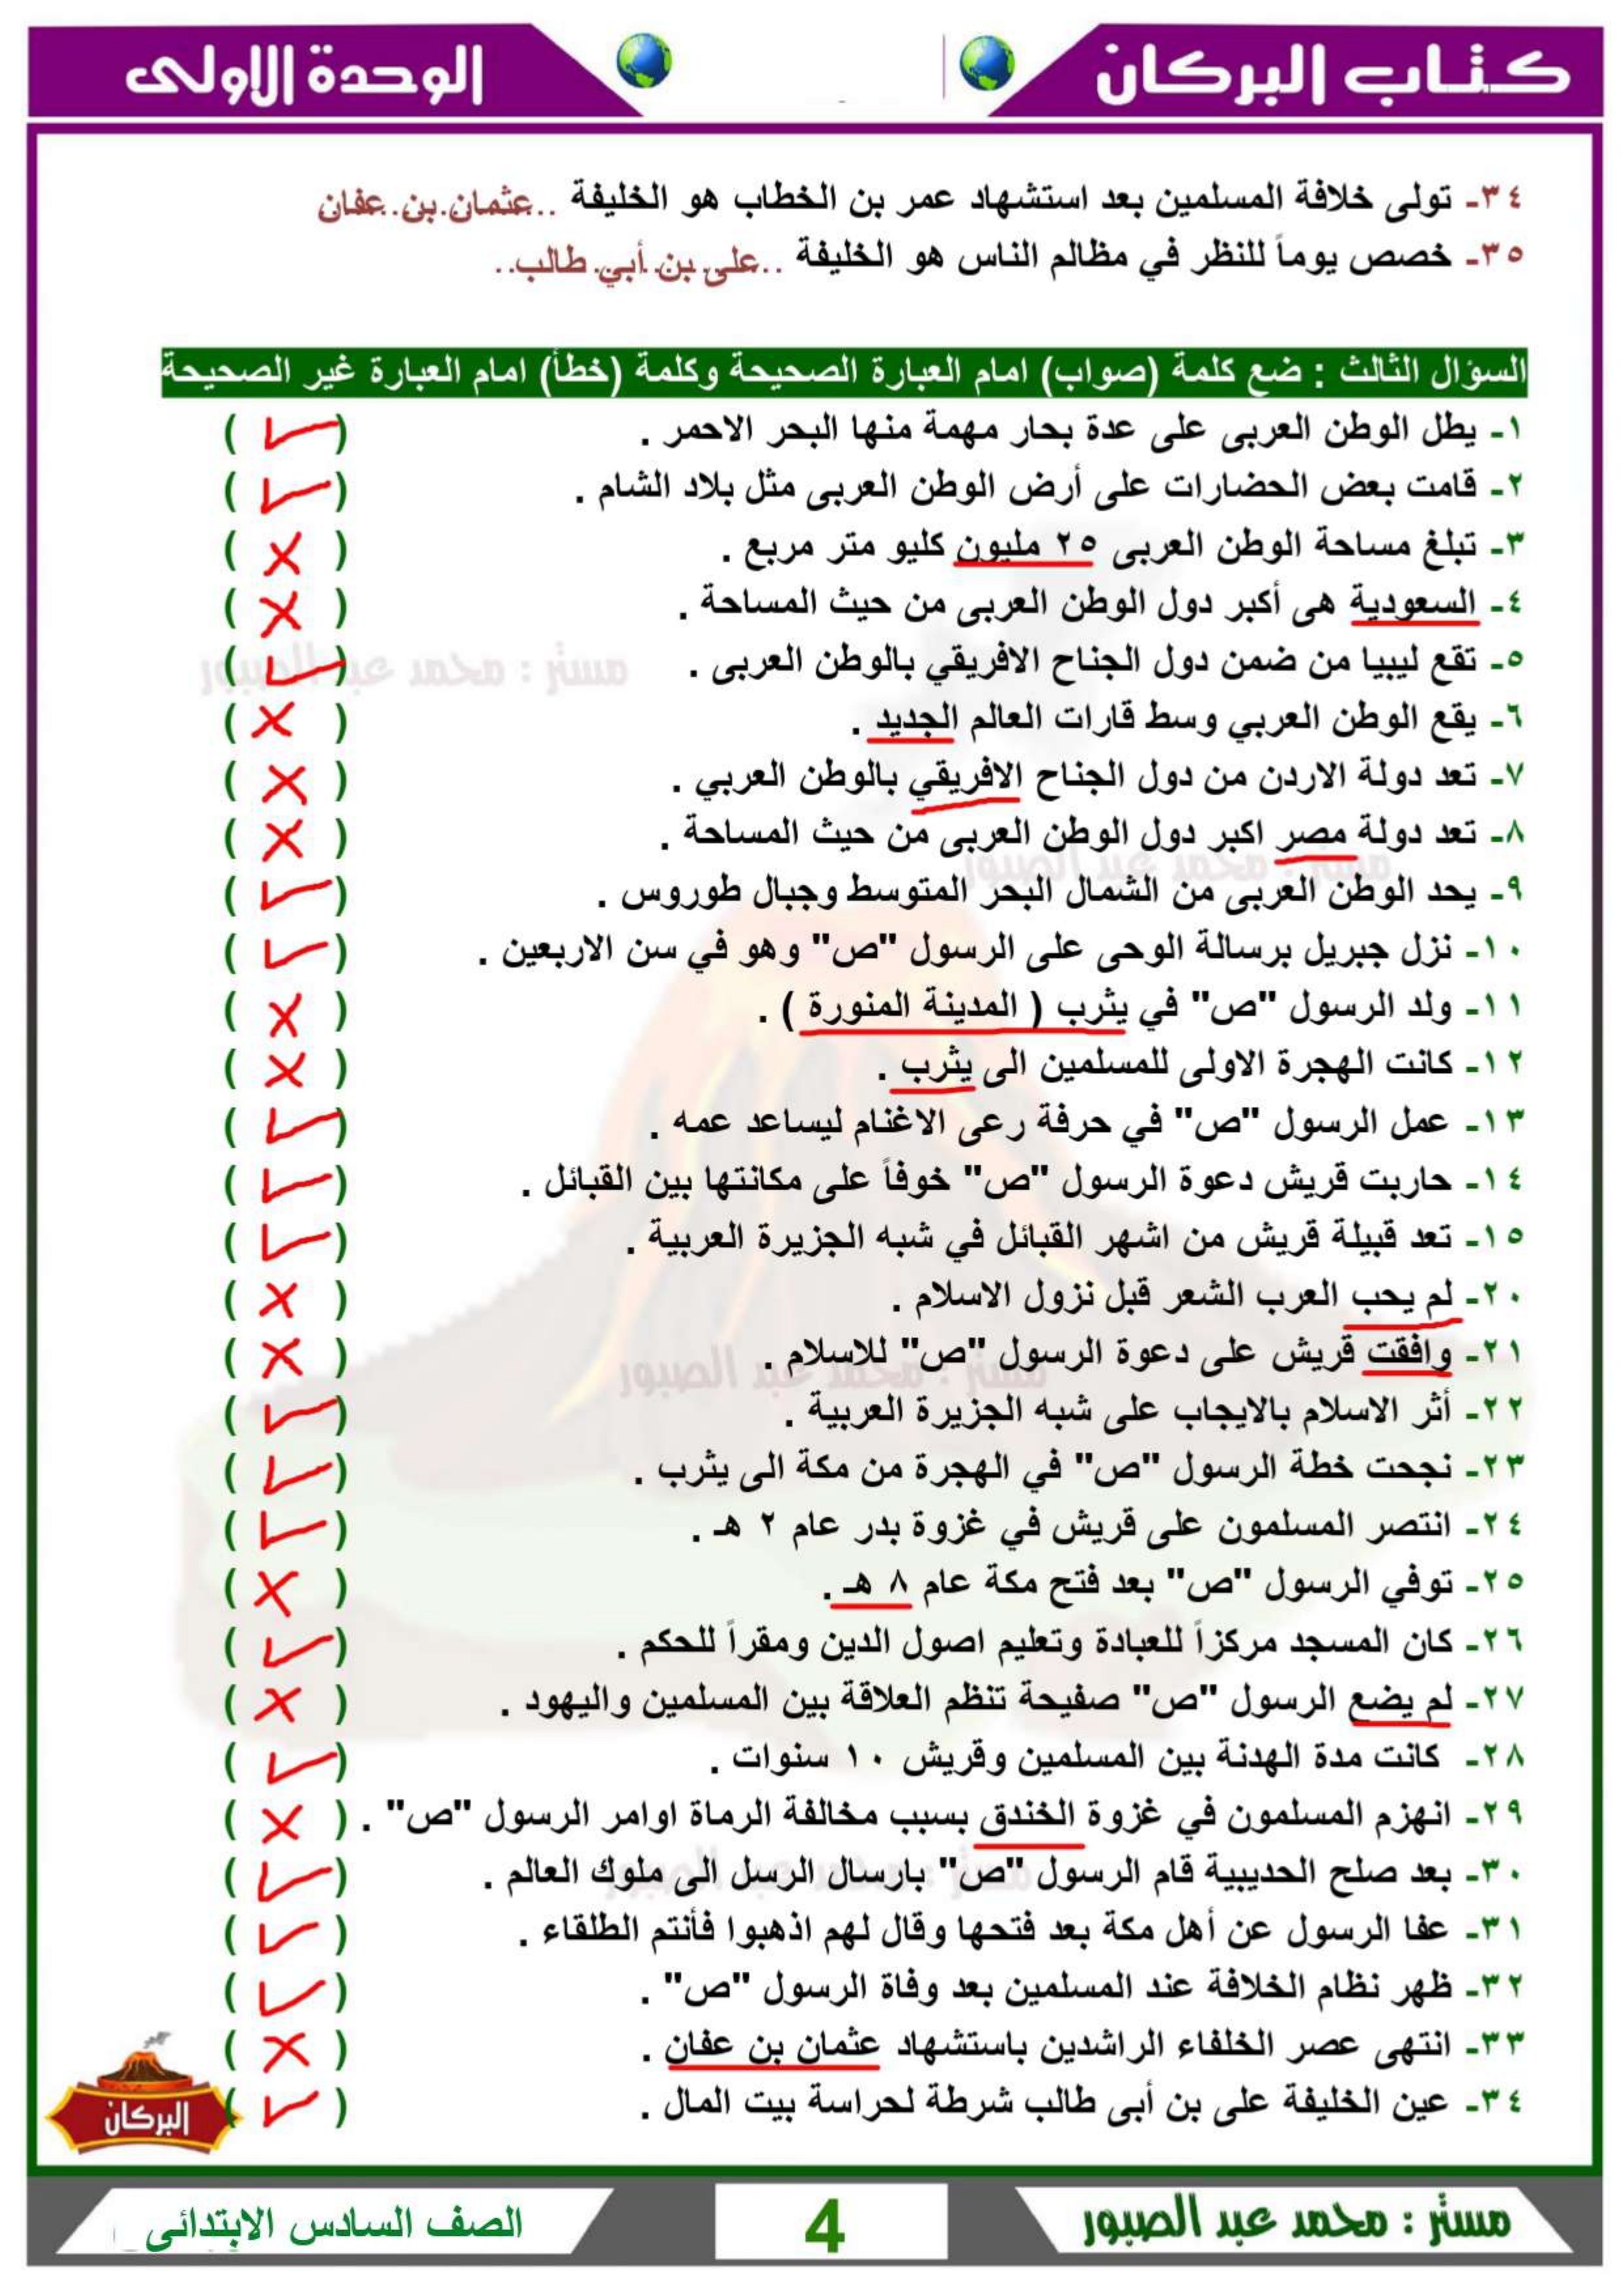 كتاب البركان
الوحدة الاولى
٣٤- تولى خلافة المسلمين بعد استشهاد عمر بن الخطاب هو الخليفة ..عثمان.بن.عفان
٣٥- خصص يوماً للنظر في مظالم الناس هو الخليفة ..على.بن.أبي.طالب..
السؤال الثالث : ضع كلمة (صواب) امام العبارة الصحيحة وكلمة (خطأ) امام العبارة غير الصحيحة
١- يطل الوطن العربى على عدة بحار مهمة منها البحر الاحمر . ( ✓ )
٢- قامت بعض الحضارات على أرض الوطن العربى مثل بلاد الشام . ( ✓ )
٣- تبلغ مساحة الوطن العربى ٢٥ مليون كليو متر مربع . ( ✗ )
٤- السعودية هى أكبر دول الوطن العربى من حيث المساحة . ( ✗ )
٥- تقع ليبيا من ضمن دول الجناح الافريقي بالوطن العربى . ( ✓ )
٦- يقع الوطن العربي وسط قارات العالم الجديد . ( ✗ )
٧- تعد دولة الاردن من دول الجناح الافريقي بالوطن العربي . ( ✗ )
٨- تعد دولة مصر اكبر دول الوطن العربى من حيث المساحة . ( ✗ )
٩- يحد الوطن العربى من الشمال البحر المتوسط وجبال طوروس . ( ✓ )
١٠- نزل جبريل برسالة الوحى على الرسول "ص" وهو في سن الاربعين . ( ✓ )
١١- ولد الرسول "ص" في يثرب ( المدينة المنورة ) . ( ✗ )
١٢- كانت الهجرة الاولى للمسلمين الى يثرب . ( ✗ )
١٣- عمل الرسول "ص" في حرفة رعى الاغنام ليساعد عمه . ( ✓ )
١٤- حاربت قريش دعوة الرسول "ص" خوفاً على مكانتها بين القبائل . ( ✓ )
١٥- تعد قبيلة قريش من اشهر القبائل في شبه الجزيرة العربية . ( ✓ )
٢٠- لم يحب العرب الشعر قبل نزول الاسلام . ( ✗ )
٢١- وافقت قريش على دعوة الرسول "ص" للاسلام . ( ✗ )
٢٢- أثر الاسلام بالايجاب على شبه الجزيرة العربية . ( ✓ )
٢٣- نجحت خطة الرسول "ص" في الهجرة من مكة الى يثرب . ( ✓ )
٢٤- انتصر المسلمون على قريش في غزوة بدر عام ٢ هـ . ( ✓ )
٢٥- توفي الرسول "ص" بعد فتح مكة عام ٨ هـ . ( ✗ )
٢٦- كان المسجد مركزاً للعبادة وتعليم اصول الدين ومقراً للحكم . ( ✓ )
٢٧- لم يضع الرسول "ص" صفيحة تنظم العلاقة بين المسلمين واليهود . ( ✗ )
٢٨- كانت مدة الهدنة بين المسلمين وقريش ١٠ سنوات . ( ✓ )
٢٩- انهزم المسلمون في غزوة الخندق بسبب مخالفة الرماة اوامر الرسول "ص" . ( ✗ )
٣٠- بعد صلح الحديبية قام الرسول "ص" بارسال الرسل الى ملوك العالم . ( ✓ )
٣١- عفا الرسول عن أهل مكة بعد فتحها وقال لهم اذهبوا فأنتم الطلقاء . ( ✓ )
٣٢- ظهر نظام الخلافة عند المسلمين بعد وفاة الرسول "ص" . ( ✓ )
٣٣- انتهى عصر الخلفاء الراشدين باستشهاد عثمان بن عفان . ( ✗ )
٣٤- عين الخليفة على بن أبى طالب شرطة لحراسة بيت المال . ( ✓ )
البركان
مستر : محمد عبد الصبور
4
الصف السادس الابتدائى
مستر : محمد عبد الصبور
مستر : محمد عبد الصبور
مستر : محمد عبد الصبور
مستر : محمد عبد الصبور